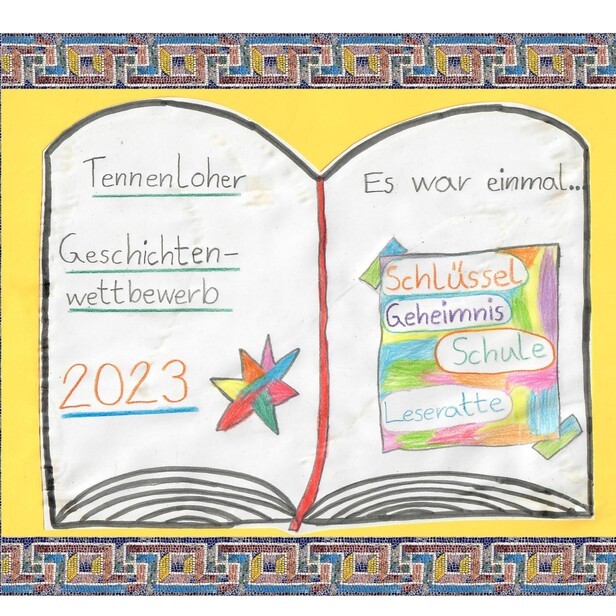 Tennenloher
Geschichten-
wettbewerb
2023
Es war einmal...
Schlüssel
Geheimnis
Schule
Leseratte